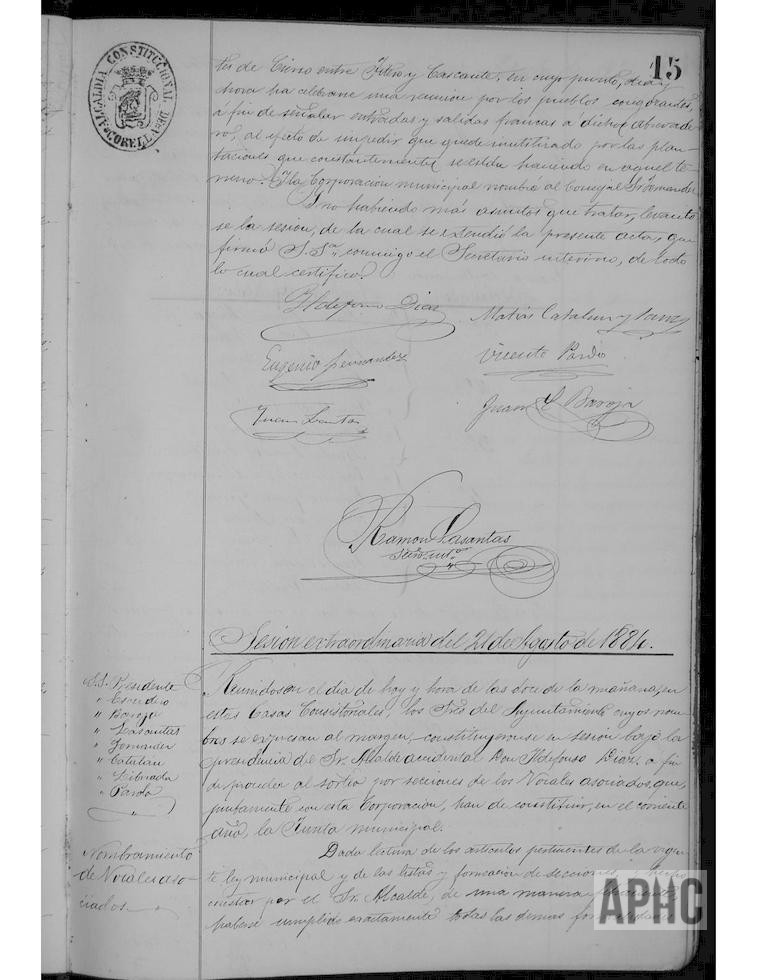 15
ALCALDIA CONSTITUCIONAL DE CORELLA
tes de Cierzo entre Fitero y Cascante, en cuyo punto, dia y
hora ha celebrarse una reunion por los pueblos congozantes,
á fin de señalar entradas y salidas francas á dichos abrevade
ros, al efecto de impedir que quede inutilizado por las plan-
taciones que constantemente se estan haciendo en aquel te-
rreno. Y la Corporacion municipal nombró al Concejal Sr.
Y no habiendo más asuntos que tratar, levanto
se la sesion, de la cual se extendió la presente acta, que
firmó S. Sa. conmigo el Secretario interino, de todo
lo cual certifico.
Ildefonso Diaz
Matias Catalan y Sanz
Eugenio Fernandez
Vicente Pardo
Juan Santos
Juan Baroja
Ramon Lasantas
Srio. int.o
Sesion extraordinaria del 21 de Agosto de 1884.
S.S. Presidente
" Escudero
" Baroja
" Lasantas
" Fernandez
" Catalan
" Librada
" Pardo
"
Reunidos en el dia de hoy y hora de las doce de la mañana, en
estas Casas Consistoriales, los Sres del Ayuntamiento cuyos nom-
bres se expresan al margen, constituyeronse en sesion bajo la
presidencia de Sr. Alcalde accidental Don Ildefonso Diaz, a fin
de proceder al sorteo por secciones de los Vocales asociados, que,
juntamente con esta Corporacion, han de constituir, en el corriente
año, la Junta municipal.
Nombramiento
de Vocales aso-
ciados.
Dada lectura de los articulos pertinentes de la vigen-
te ley municipal y de las listas y formacion de secciones,
por el Sr. Alcalde, de una manera
haberse cumplido exactamente todas las demas
APHC